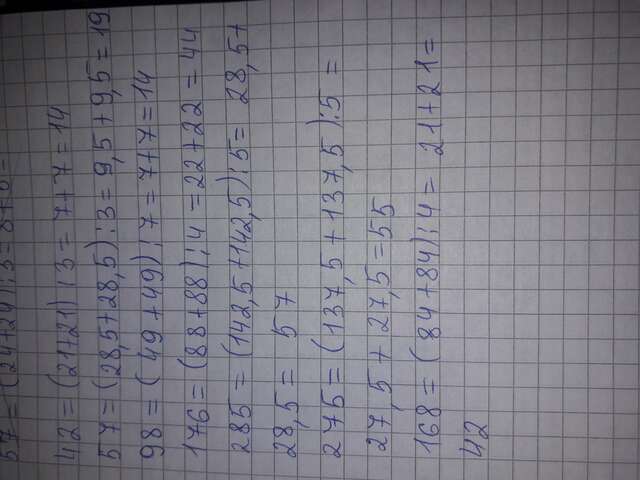 57 = (24+24):3=8+8=
42 = (21+21):3 = 7+7=14
57=(28,5+28,5):3=9,5+9,5=19
98 = (49+49):7=7+7=14
176=(88+88):4=22+22=44
285 = (142,5+142,5):5= 28,5+
28,5= 57
275=(137,5+137,5):5 =
27,5+27,5=55
168= (84+84):4= 21+21=
42